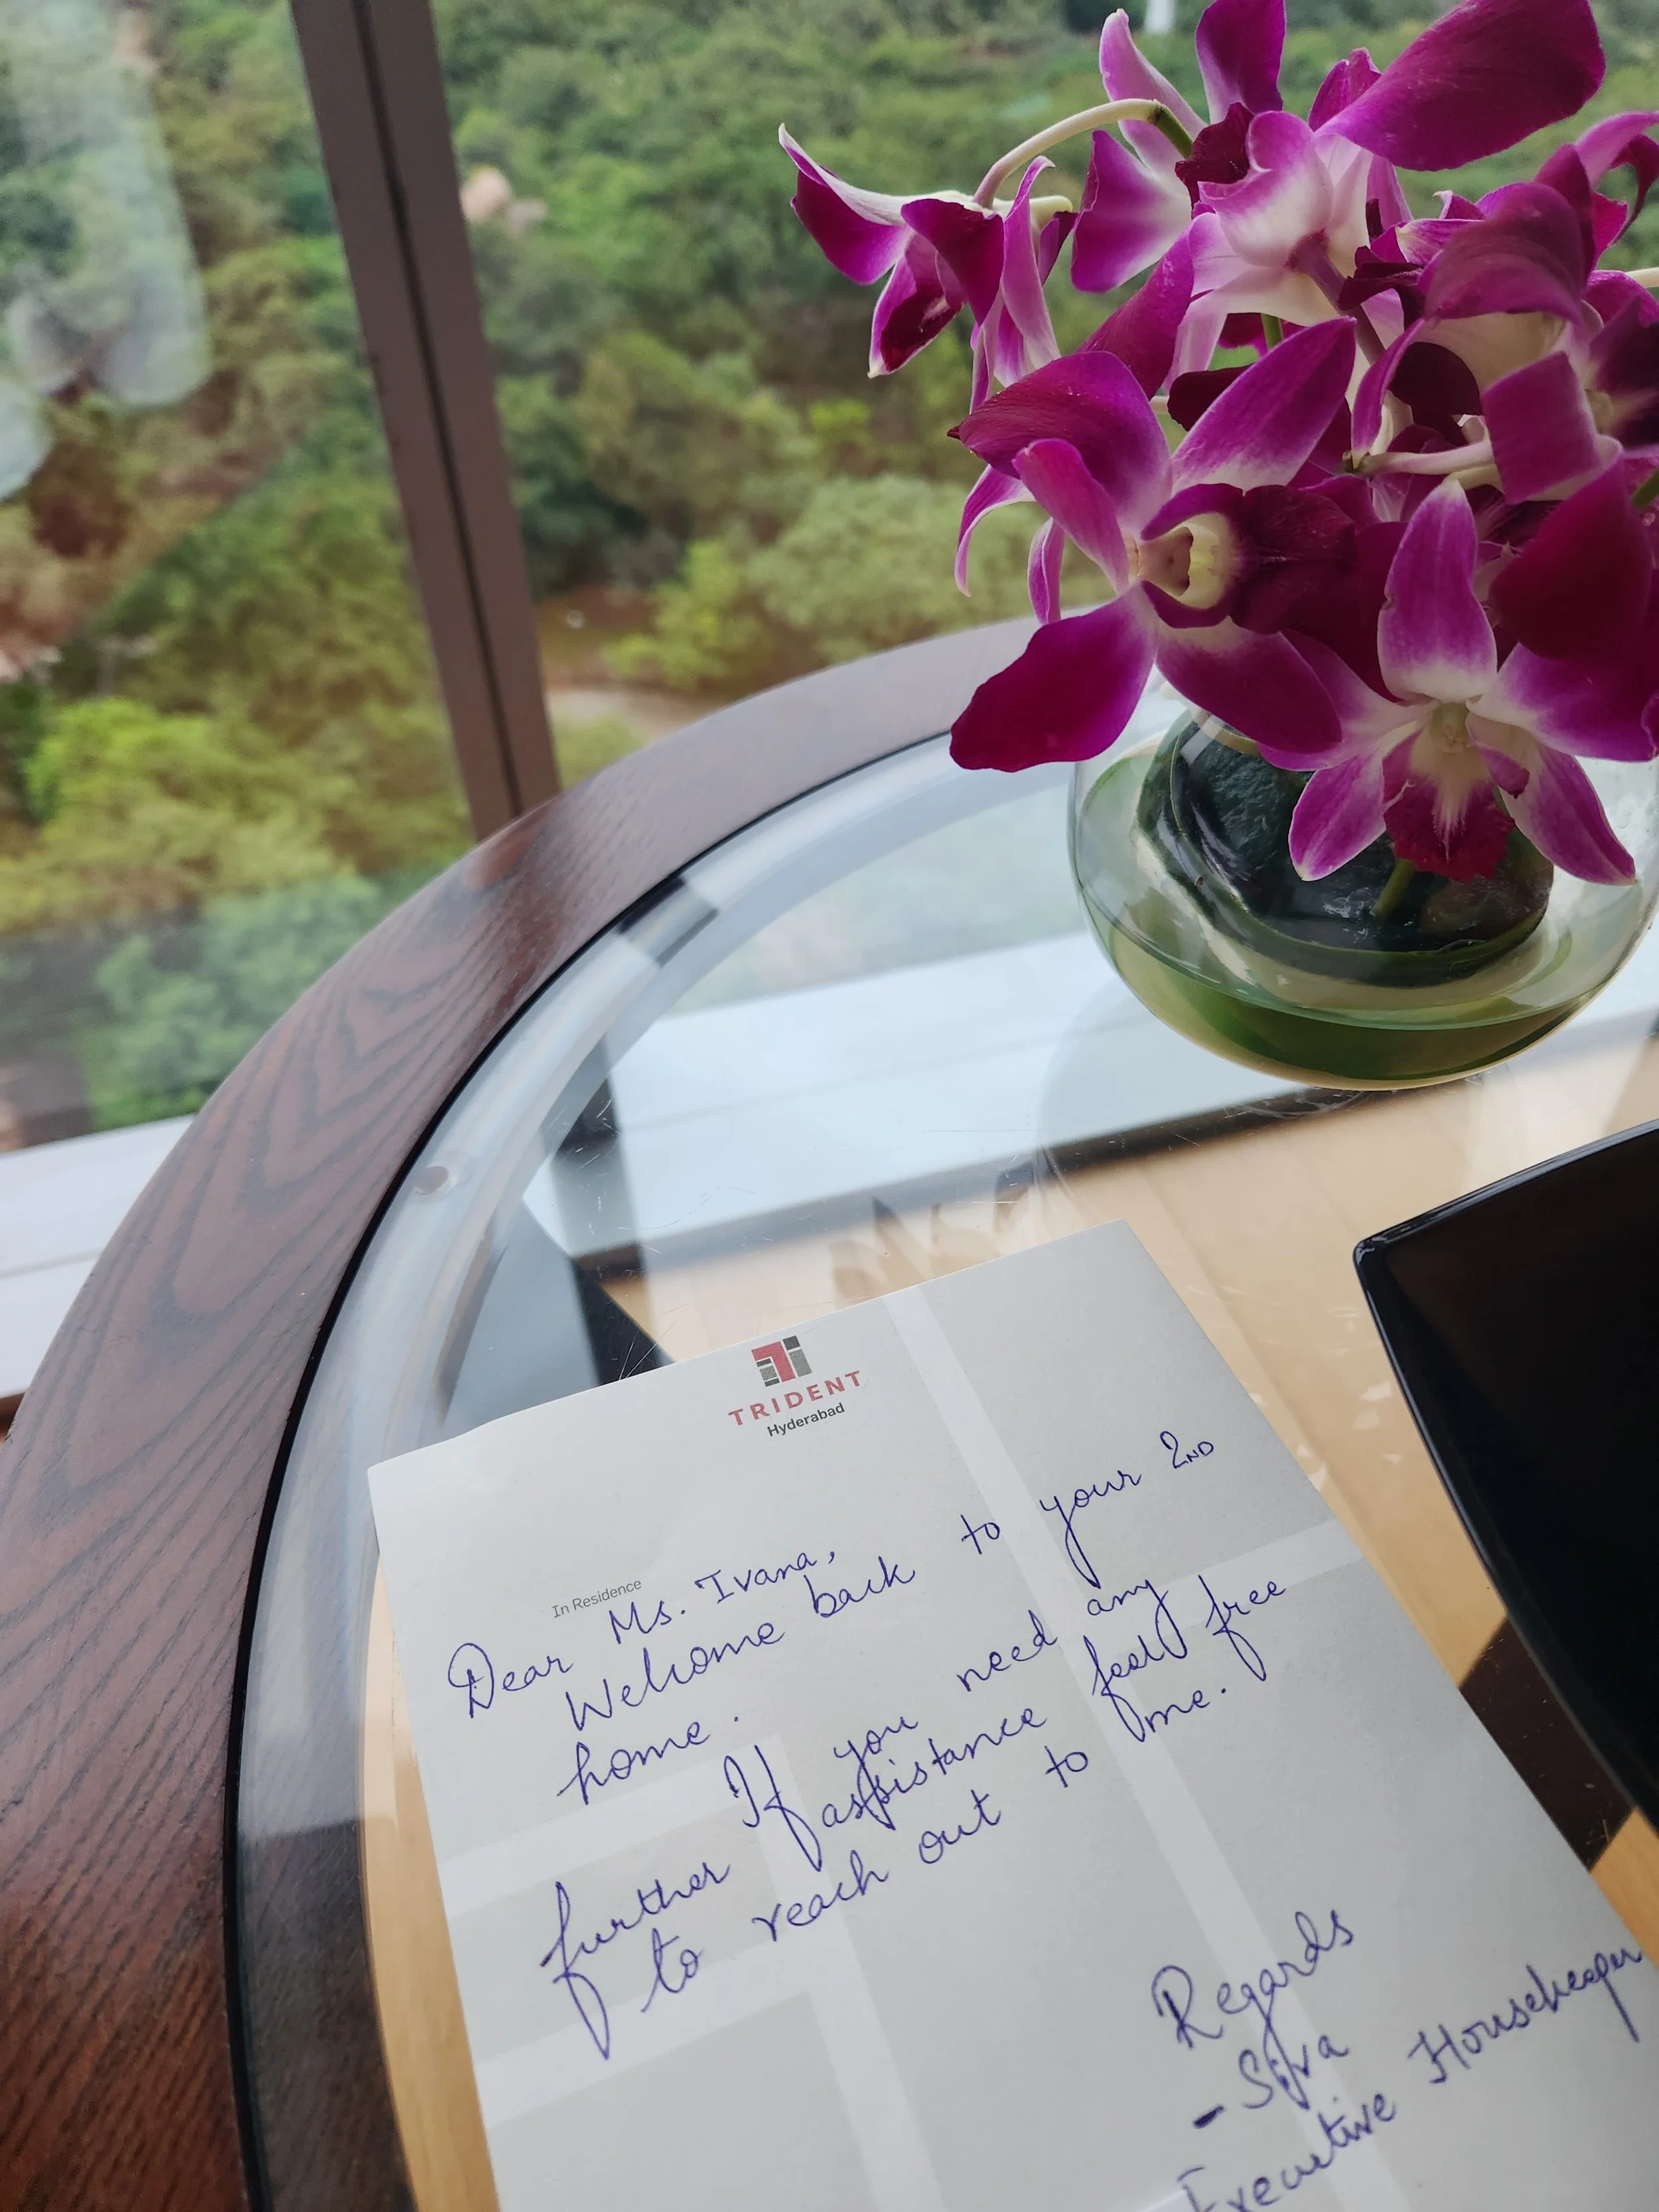 TRIDENT
Hyderabad
In Residence
Dear Ms. Ivana,
Welcome back to your 2ND
home.
If you need any
further assistance feel free
to reach out to me.
Regards
- Siva
Executive Housekeeper